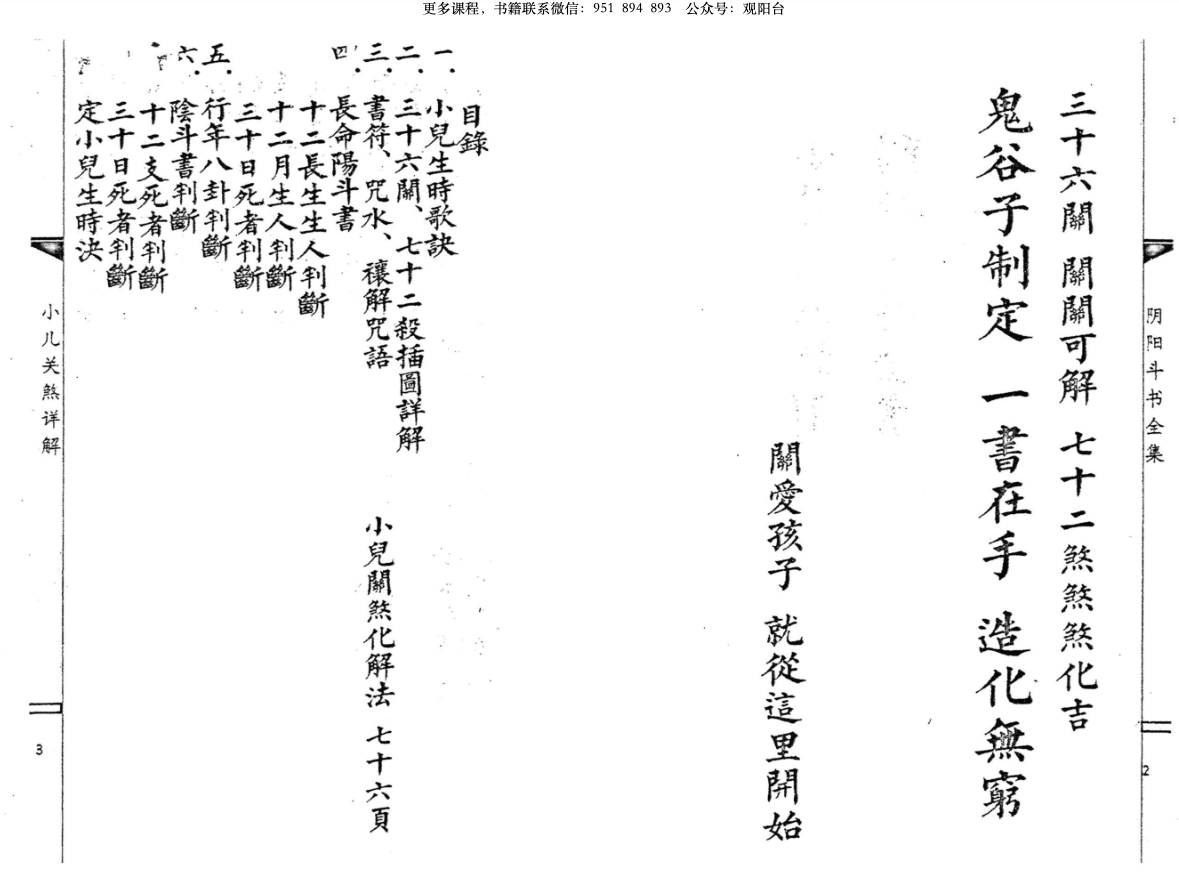 更多课程，书籍联系微信：951 894 893 公众号：观阳台
阴阳斗书全集
2
三十六關 關關可解 七十二煞煞煞化吉
鬼谷子制定 一書在手 造化無窮
關愛孩子 就從這里開始
目錄
一. 小兒生時歌訣
二. 三十六關、七十二殺插圖詳解
三. 書符、咒水、禳解咒語
小兒關煞化解法 七十六頁
四. 長命陽斗書
十二長生生人判斷
十二月生人判斷
三十日死者判斷
五. 行年八卦判斷
六. 陰斗書判斷
十二支死者判斷
三十日死者判斷
定小兒生時決
小儿关煞详解
3